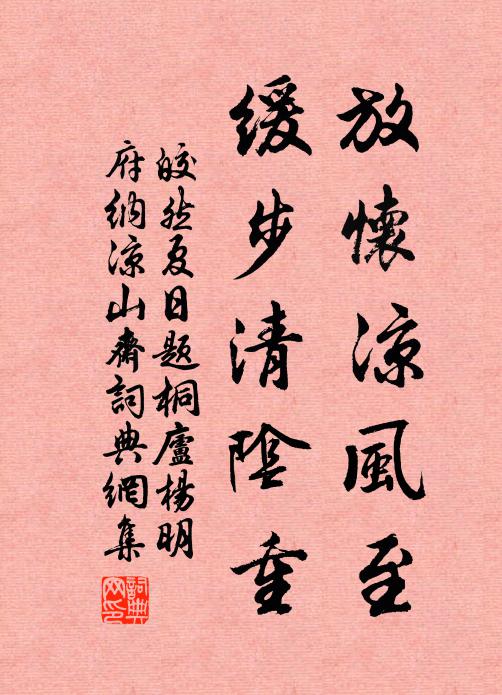 放懷涼風至
緩步清陰重
皎然夏日題桐廬楊明
府納涼山齋詞典網集
詞典
网印